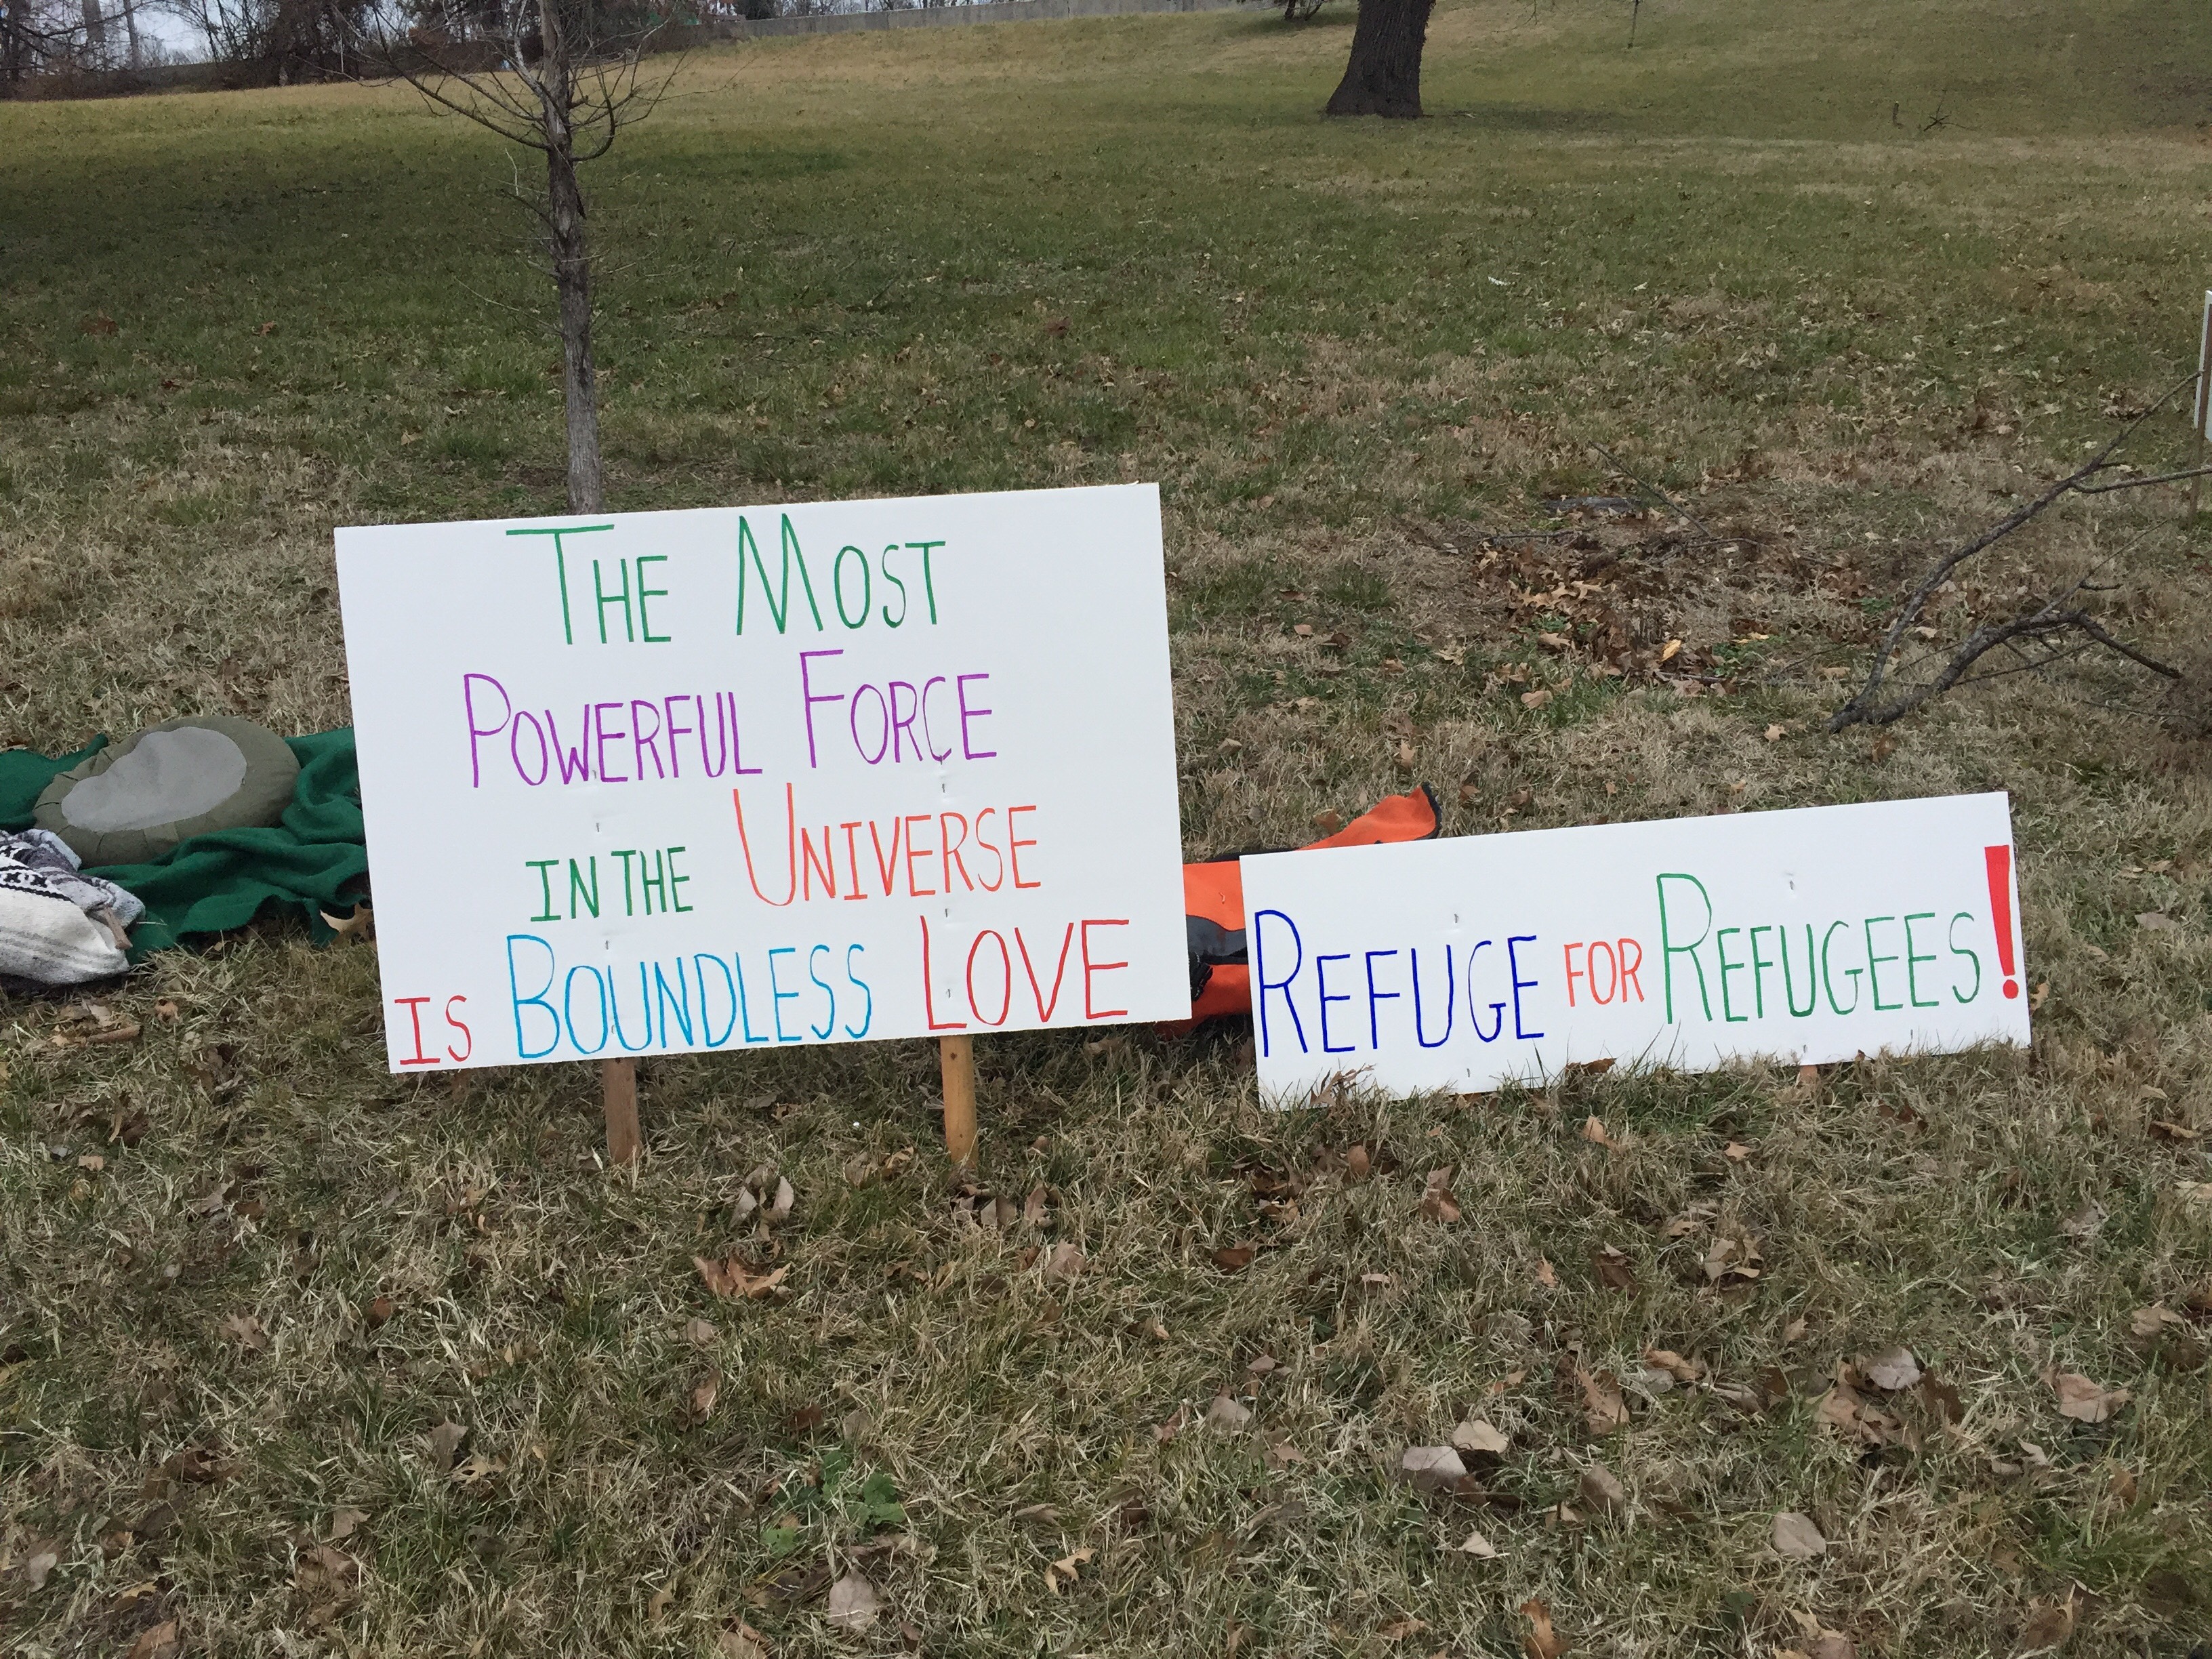 The Most
Powerful Force
in the Universe
is Boundless LOVE
Refuge for Refugees!